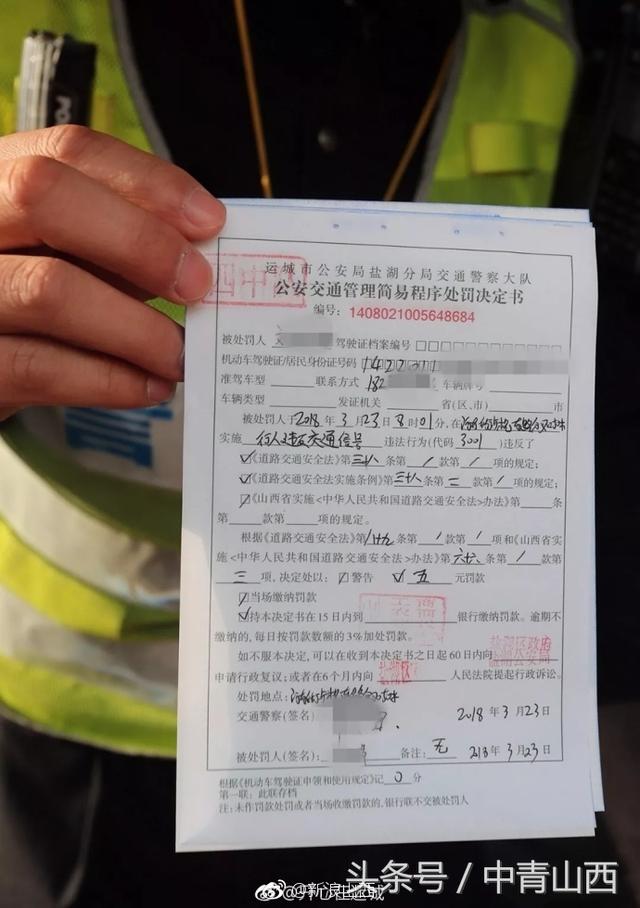 运城市公安局盐湖分局交通警察大队
公安交通管理简易程序处罚决定书
编号：1408021005648684
被处罚人 驾驶证档案编号
机动车驾驶证/居民身份证号码
准驾车型 联系方式 182 车辆牌号
车辆类型 发证机关 省(区、市) 市
被处罚人于2018年3月23日8时01分,在
实施 行人违反交通信号 违法行为(代码 3001 )违反了
《道路交通安全法》第三十八条第/款第/项的规定；
《道路交通安全法实施条例》第三十八条第二款第/项的规定；
《山西省实施<中华人民共和国道路交通安全法>办法》第 条
第 款第 项的规定。
根据《道路交通安全法》第八十九条第/款第/项和《山西省实
施<中华人民共和国道路交通安全法>办法》第六十六条第/款第
三项,决定处以：警告 五元罚款
当场缴纳罚款
持本决定书在15日内到 银行缴纳罚款。逾期不
缴纳的,每日按罚款数额的3%加处罚款。
如不服本决定,可以在收到本决定书之日起60日内向 盐湖区政府
申请行政复议；或者在6个月内向 盐湖区 人民法院提起行政诉讼。
处罚地点：
交通警察(签名) 2018年3月23日
被处罚人(签名)： 备注：无 218年3月23日
根据《机动车驾驶证申领和使用规定》记 0 分
第一联：此联存档
注：未作罚款处罚或者当场收缴罚款的,银行联不交被处罚人
头条号 / 中青山西